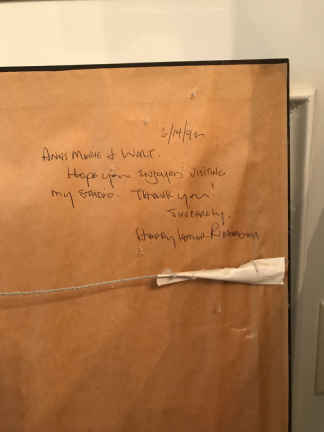 6/14/92
Anne Marie & Walt.
Hope you enjoyed visiting
my studio. Thank you!
Sincerely,
Harry